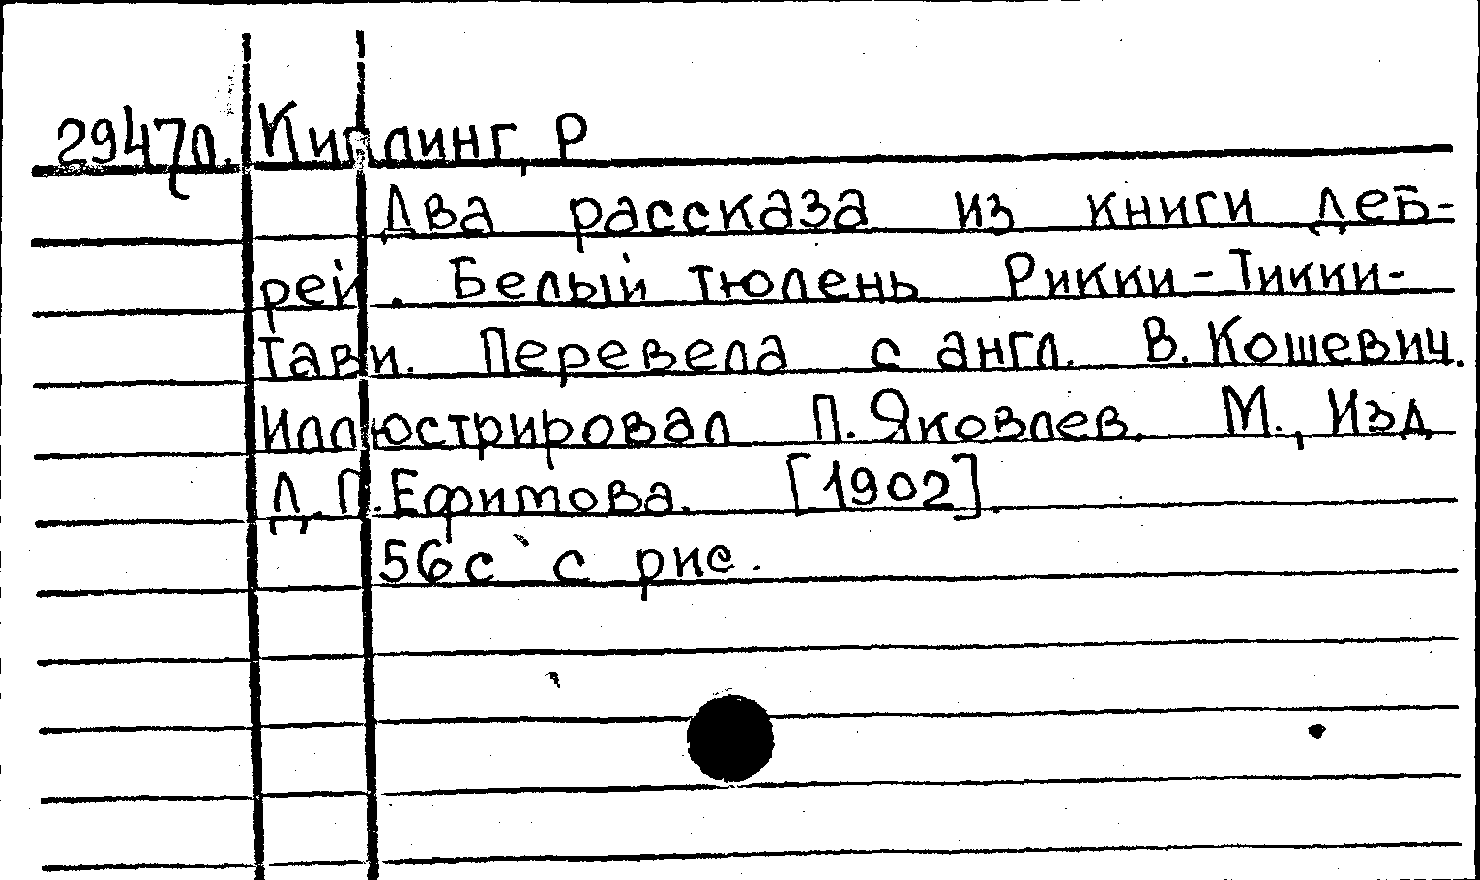 2947л. Киплинг, Р
Два рассказа из книги деб-
рей. Белый тюлень Рикки-Тикки-
Тави. Перевела с англ. В. Кошевич.
Иллюстрировал П. Яковлев. М., Изд
Д. П. Ефимова. [1902].
56с с рис.